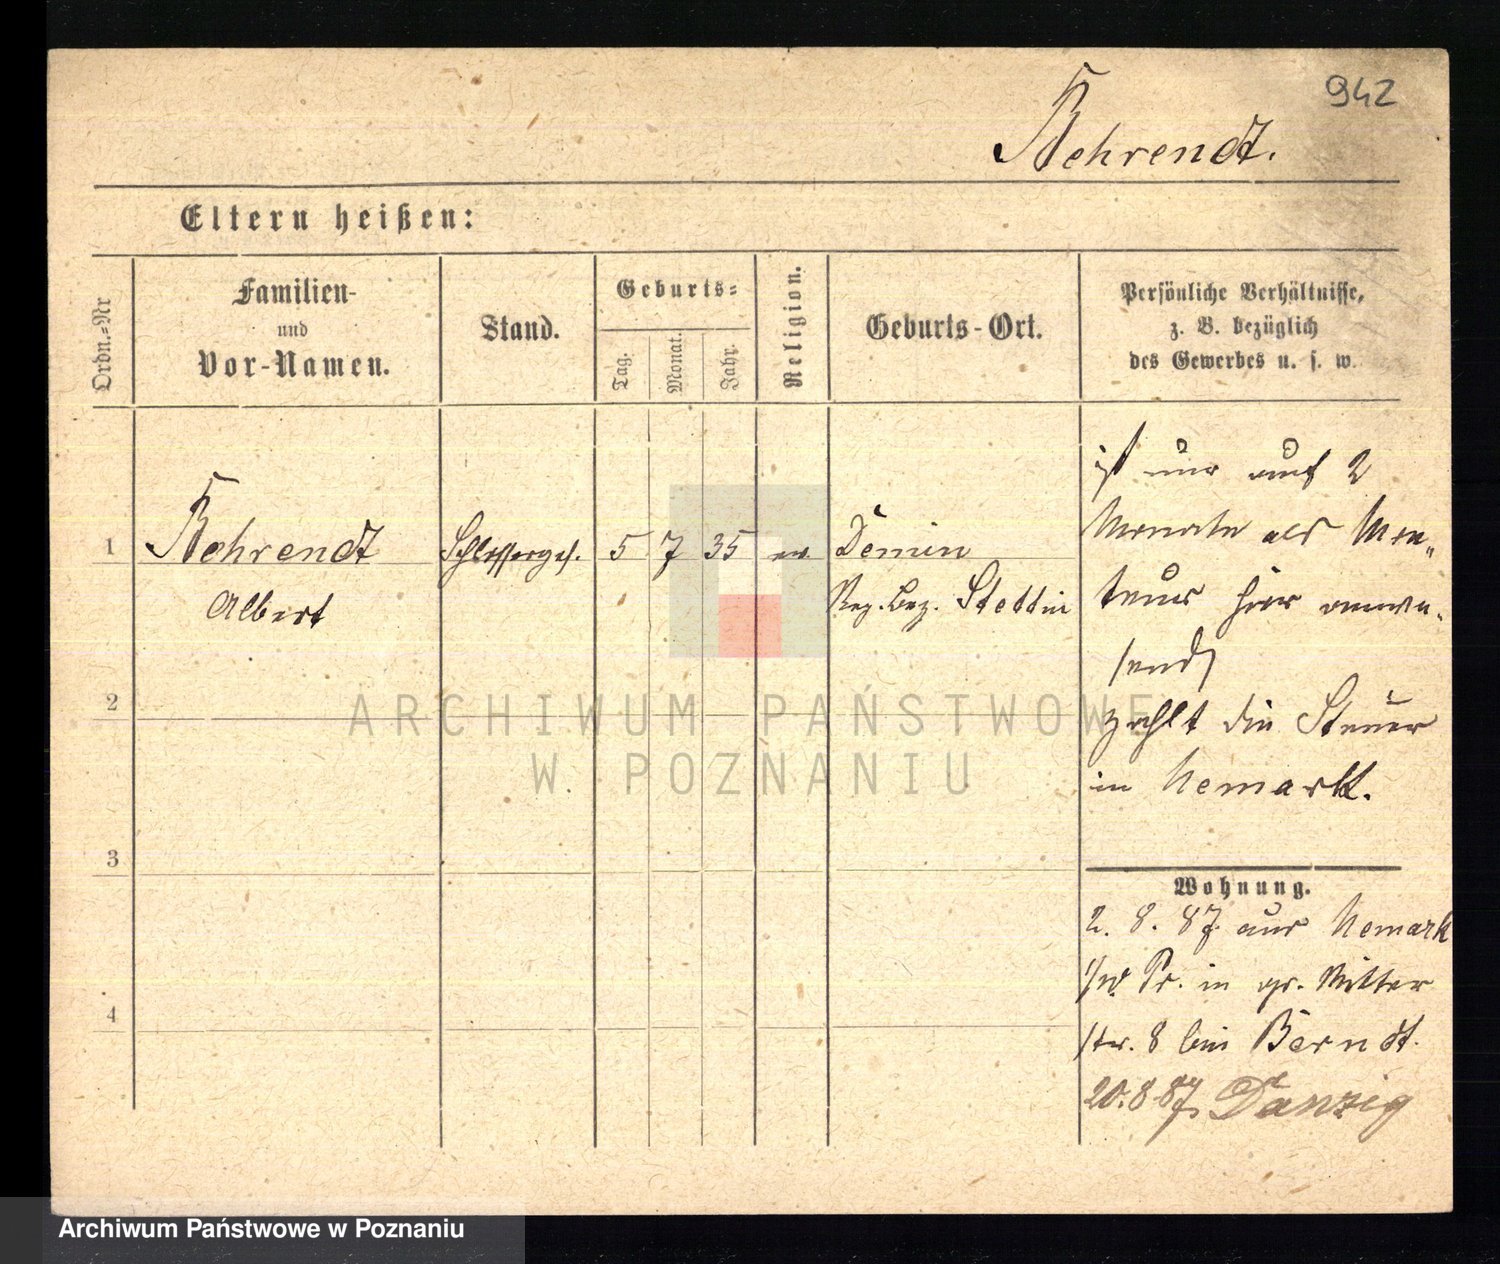 942
Behrendt.
Eltern heißen:
Ordn.-Nr
Familien-
und
Vor-Namen.
Stand.
Geburts-
Tag.
Monat.
Jahr.
Religion.
Geburts-Ort.
Persönliche Verhältnisse,
z. B. bezüglich
des Gewerbes u. s. w.
1
Behrendt
Albert
Schlosserges.
5
7
35
ev
Demin
Reg. Bez. Stettin
ist nur auf 2
Monate als Mon„
teur hier anwe„
send,
zahlt die Steuer
in Nemark.
2
3
4
Wohnung.
2. 8. 87 aus Nemark
Pr. in gr. Ritter
str. 8 bei Berndt.
20.8.87 Danzig
ARCHIWUM PAŃSTWOWE
W POZNANIU
Archiwum Państwowe w Poznaniu